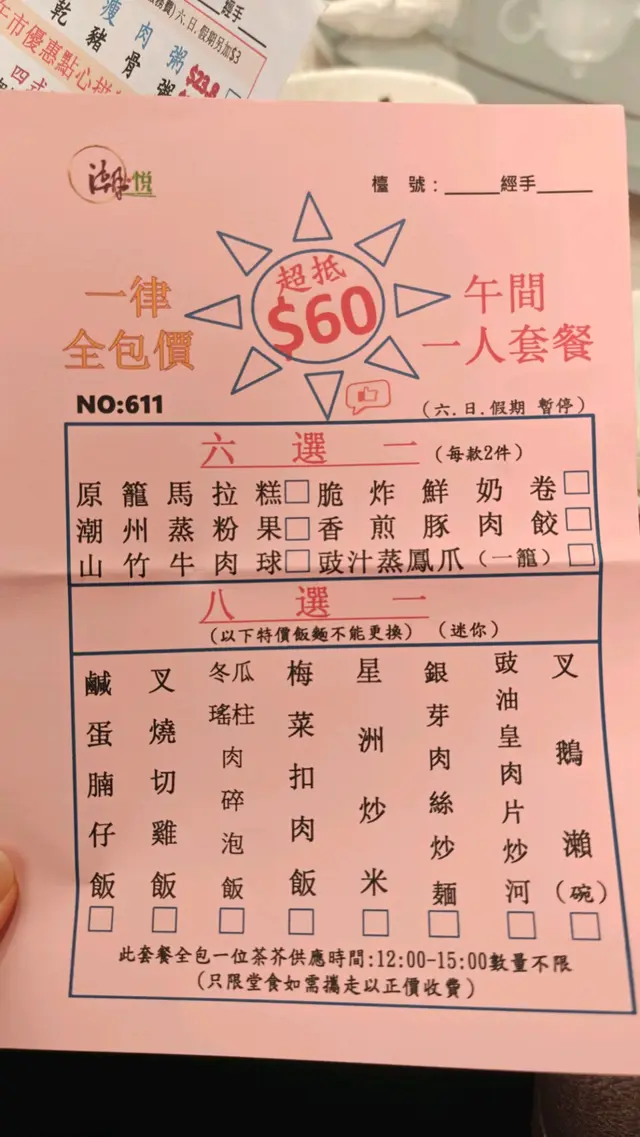 經手
瘦肉粥 $23.8
乾豬骨粥
六.日.假期另加$3
市優惠點心
潮悅
檯 號：______經手______
超抵
$60
一律
全包價
午間
一人套餐
NO:611
（六.日.假期 暫停）
六 選 一（每款2件）
原籠馬拉糕□ 脆炸鮮奶卷□
潮州蒸粉果□ 香煎豚肉餃□
山竹牛肉球□ 豉汁蒸鳳爪（一籠）□
八 選 一
（以下特價飯麵不能更換）（迷你）
鹹蛋腩仔飯□
叉燒切雞飯□
冬瓜瑤柱肉碎泡飯□
梅菜扣肉飯□
星洲炒米□
銀芽肉絲炒麵□
豉油皇肉片炒河□
叉鵝瀨（碗）□
此套餐全包一位茶芥供應時間:12:00-15:00數量不限
（只限堂食如需攜走以正價收費）